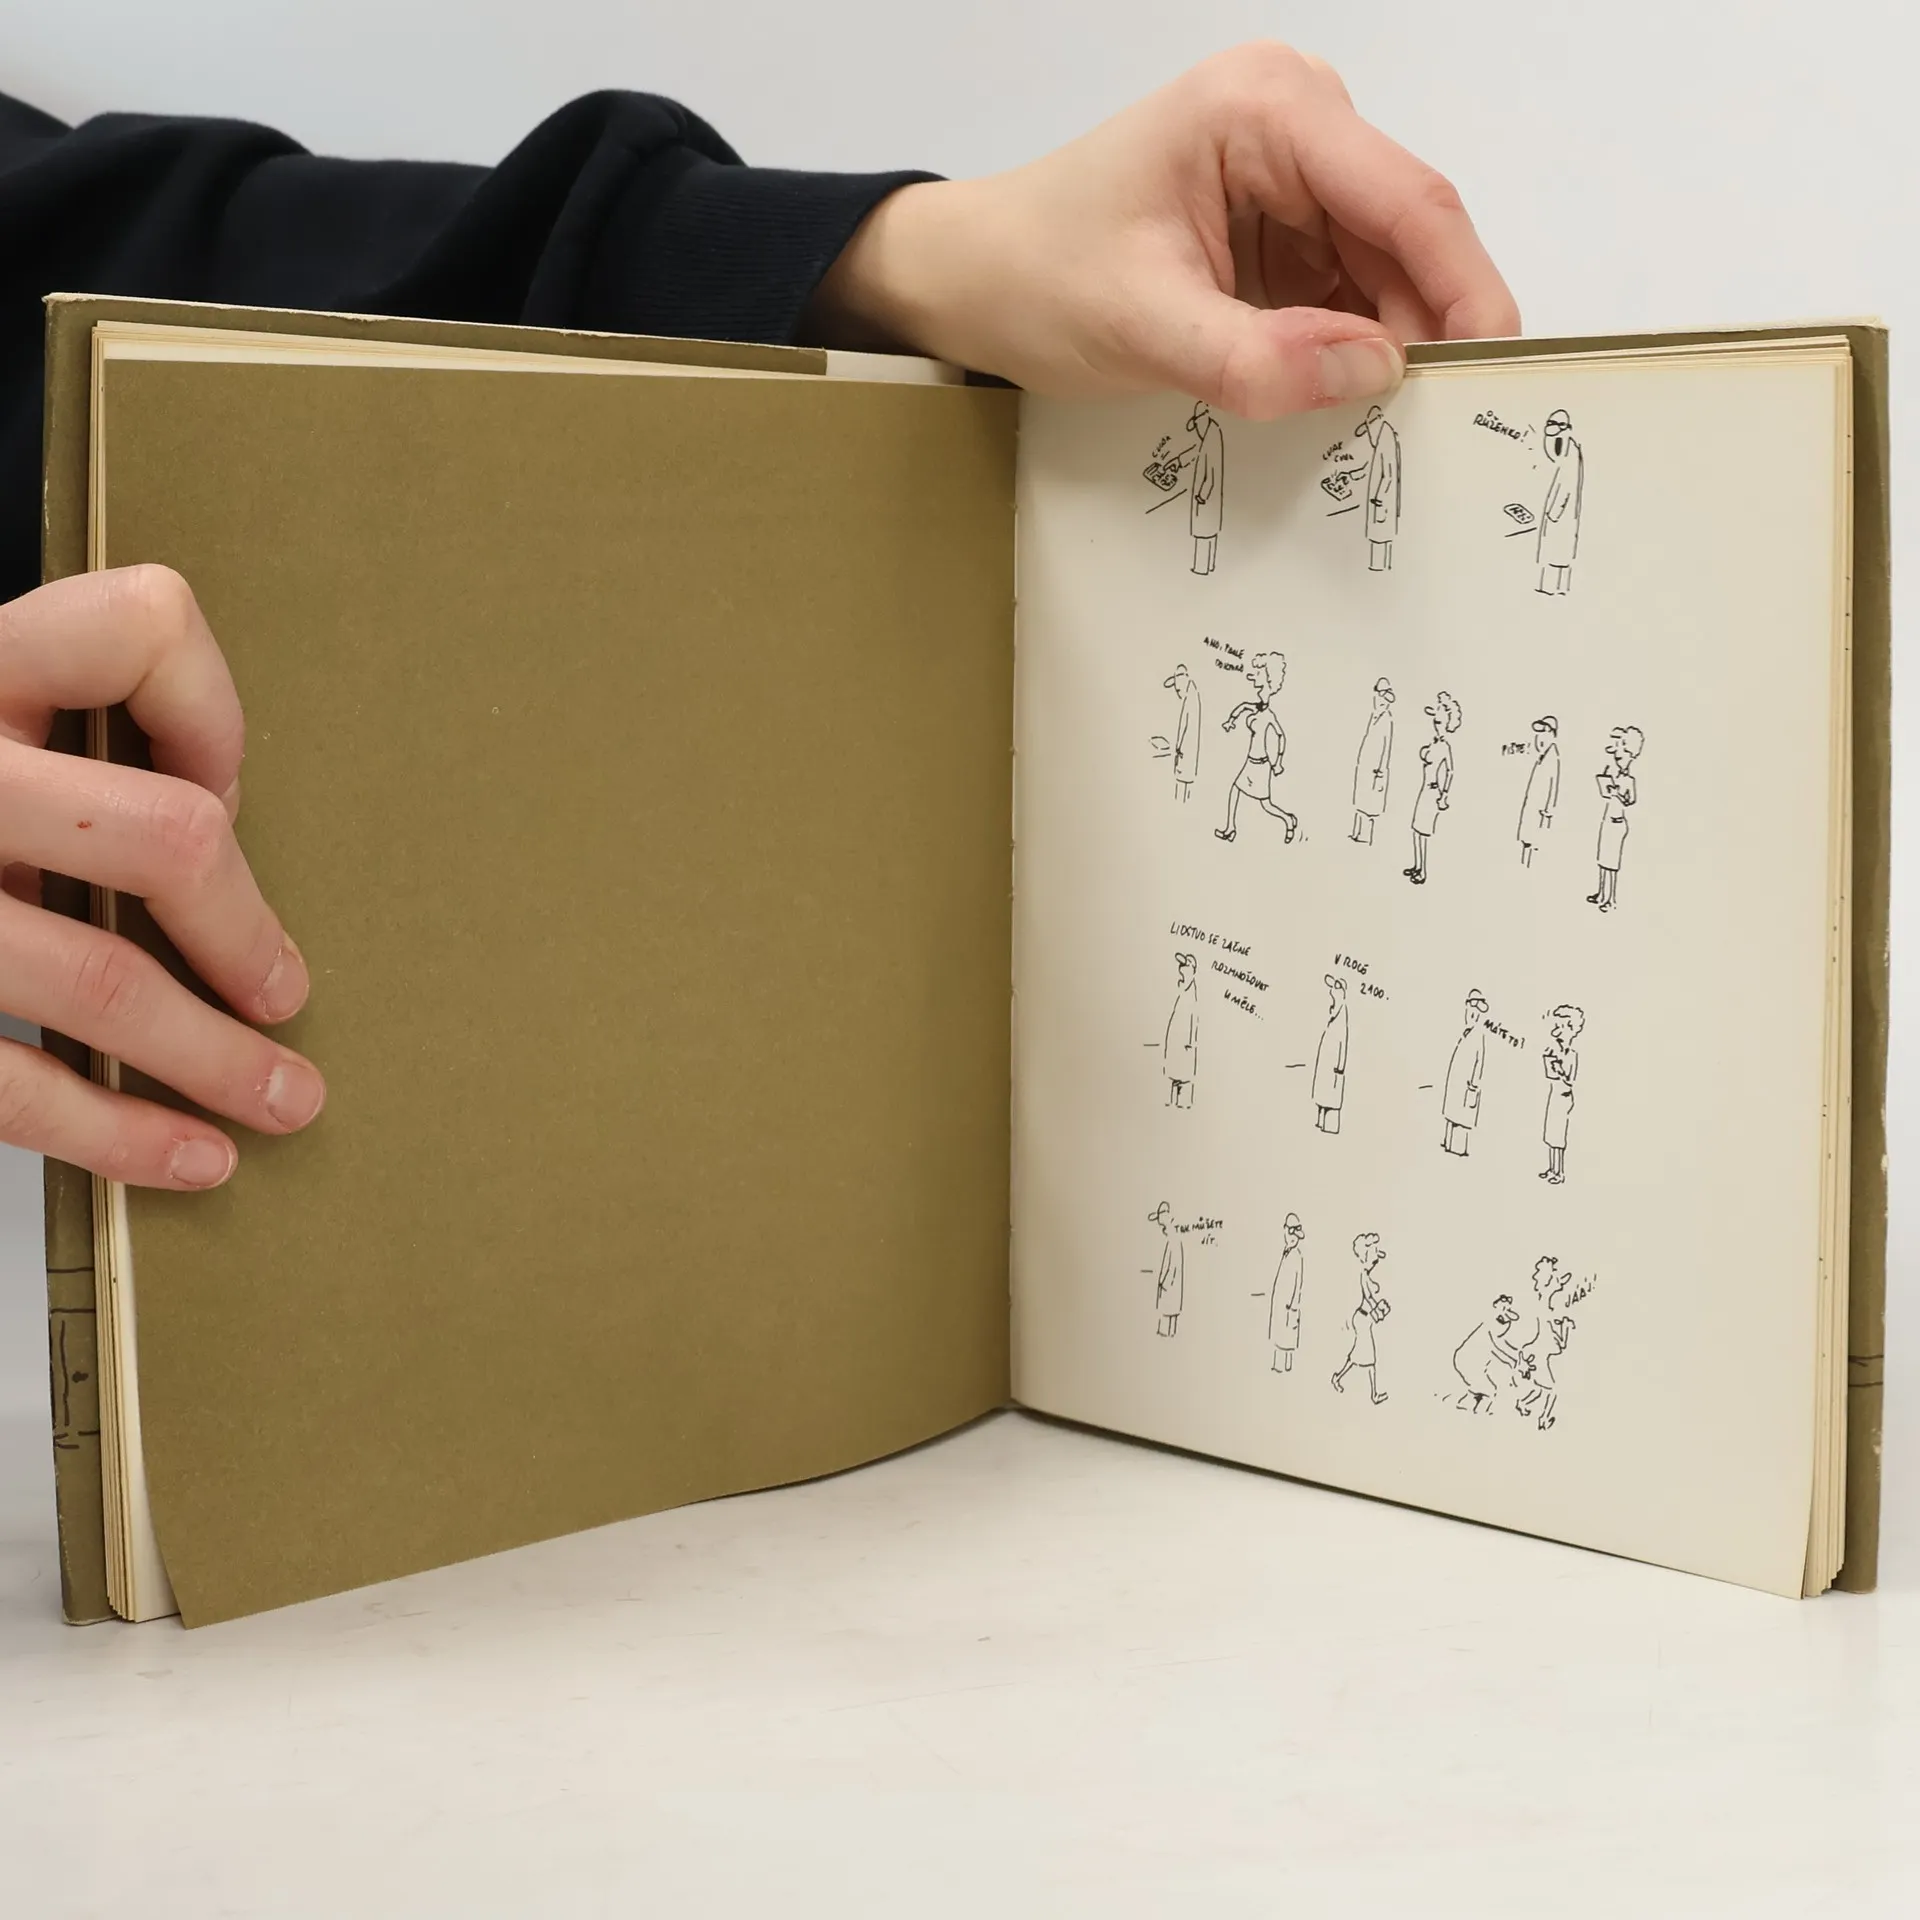 CVAK
CVAK
CVAK
RŮŽENKO!
ANO, PANE
DOKTORE
PIŠTE!
LIDSTVO SE ZAČNE
ROZMNOŽOVAT
UMĚLE...
V ROCE
2100.
MÁTE TO?
TAK MŮŽETE
JÍT.
JÁÁJ!